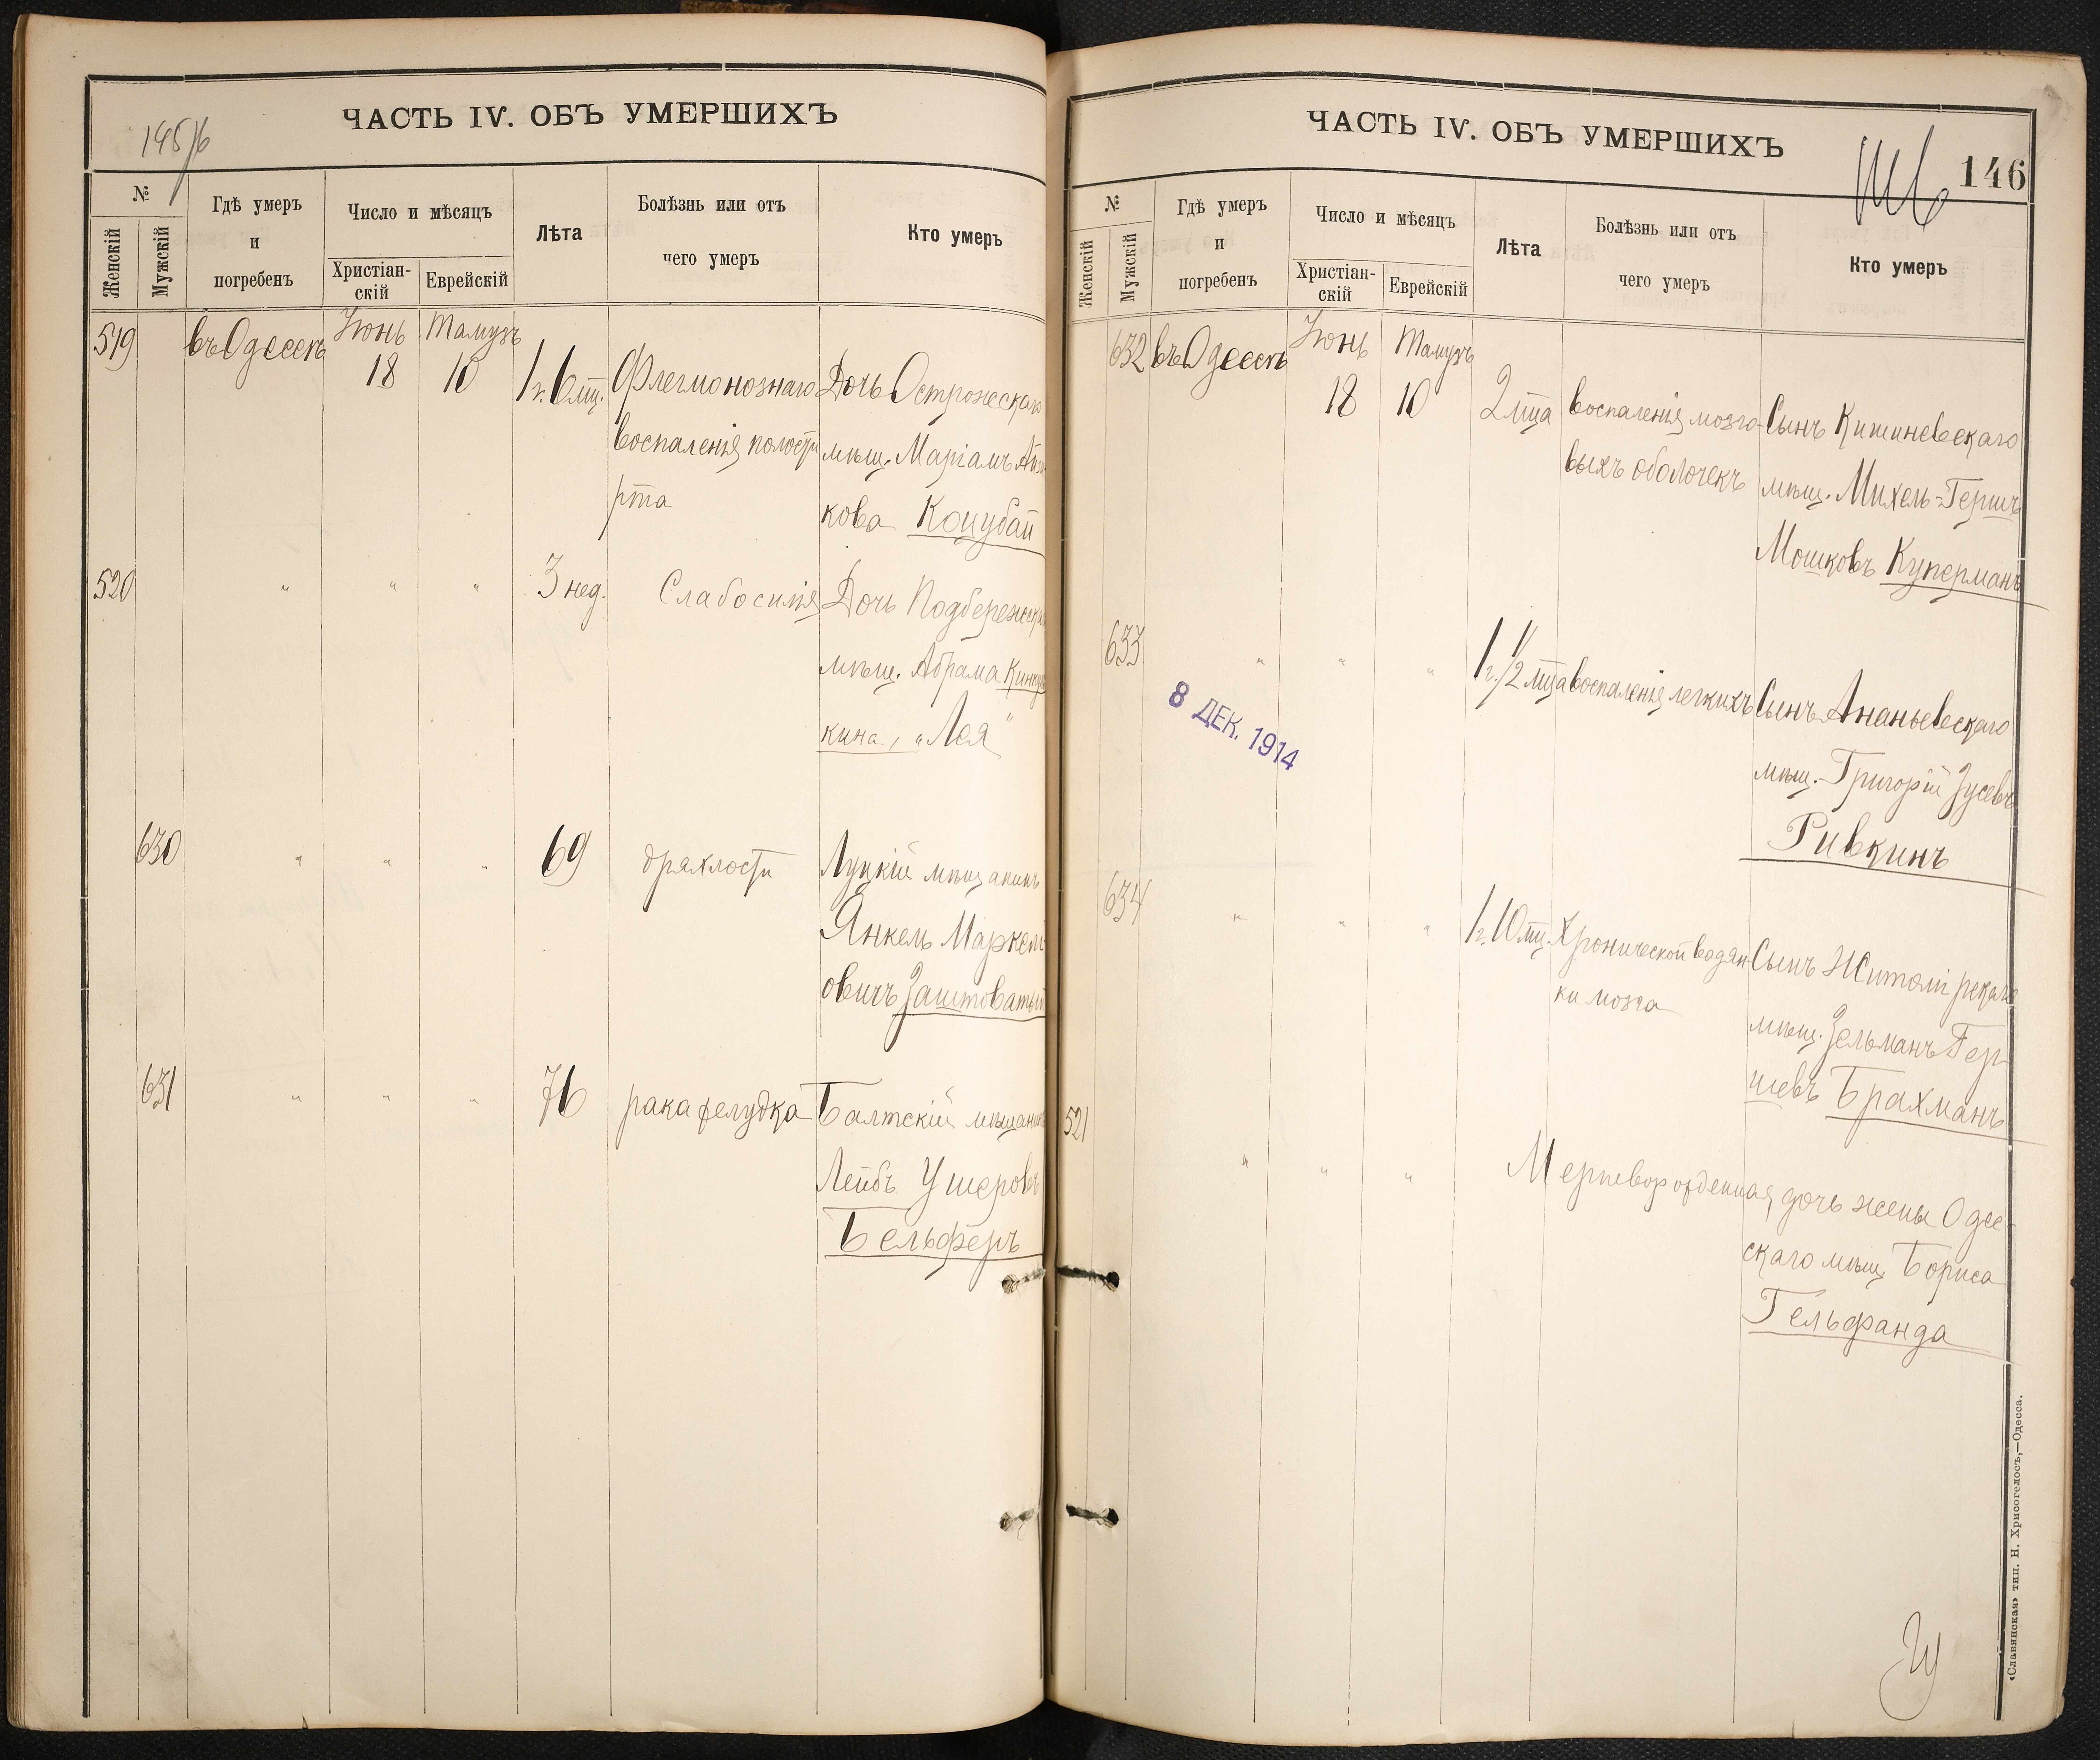 145/6
ЧАСТЬ IV. ОБЪ УМЕРШИХЪ
№
Женскій
Мужскій
Гдѣ умеръ
и
погребенъ
Число и мѣсяцъ
Христіан-
скій
Еврейскій
Лѣта
Болѣзнь или отъ
чего умеръ
Кто умеръ
519 въ Одессѣ Іюнь Тамузъ
18 10 1 г. 6 мц. Флегмонознаго Дочь Острожскаго
воспаленія полости мѣщ. Маріамъ
рта кова Коцубай
520 " " " 3 нед. Слабосилія Дочь Подбережскаго
мѣщ. Абрама
кина, „Лея"
630 " " " 69 дряхлости Луцкій мѣщанинъ
Янкель Маркель
овичъ Заштоватый
631 " " " 76 рака желудка Балтскій мѣщанинъ
Лейбъ Ушеровъ
Бельферъ
ЧАСТЬ IV. ОБЪ УМЕРШИХЪ
146
№
Женскій
Мужскій
Гдѣ умеръ
и
погребенъ
Число и мѣсяцъ
Христіан-
скій
Еврейскій
Лѣта
Болѣзнь или отъ
чего умеръ
Кто умеръ
632 въ Одессѣ Іюнь Тамузъ
18 10 2 мца воспаленія мозго- Сынъ Кишиневскаго
выхъ оболочекъ мѣщ. Михель-Гершъ
Мошковъ Куперманъ
633 " " " 1 г. 1/2 мца воспаленія легкихъ Сынъ Ананьевскаго
8 ДЕК. 1914
мѣщ. Григорій Зусевъ
Ривкинъ
634 " " " 1 г. 10 мц. Хронической водян- Сынъ Житомірскаго
ки мозга мѣщ. Зельманъ Гер-
шевъ Брахманъ
521 " " " Мертворожденная, дочь жены Одес-
скаго мѣщ. Бориса
Гельфанда
«Славянская» тип. Н. Хрисогелосъ,—Одесса.